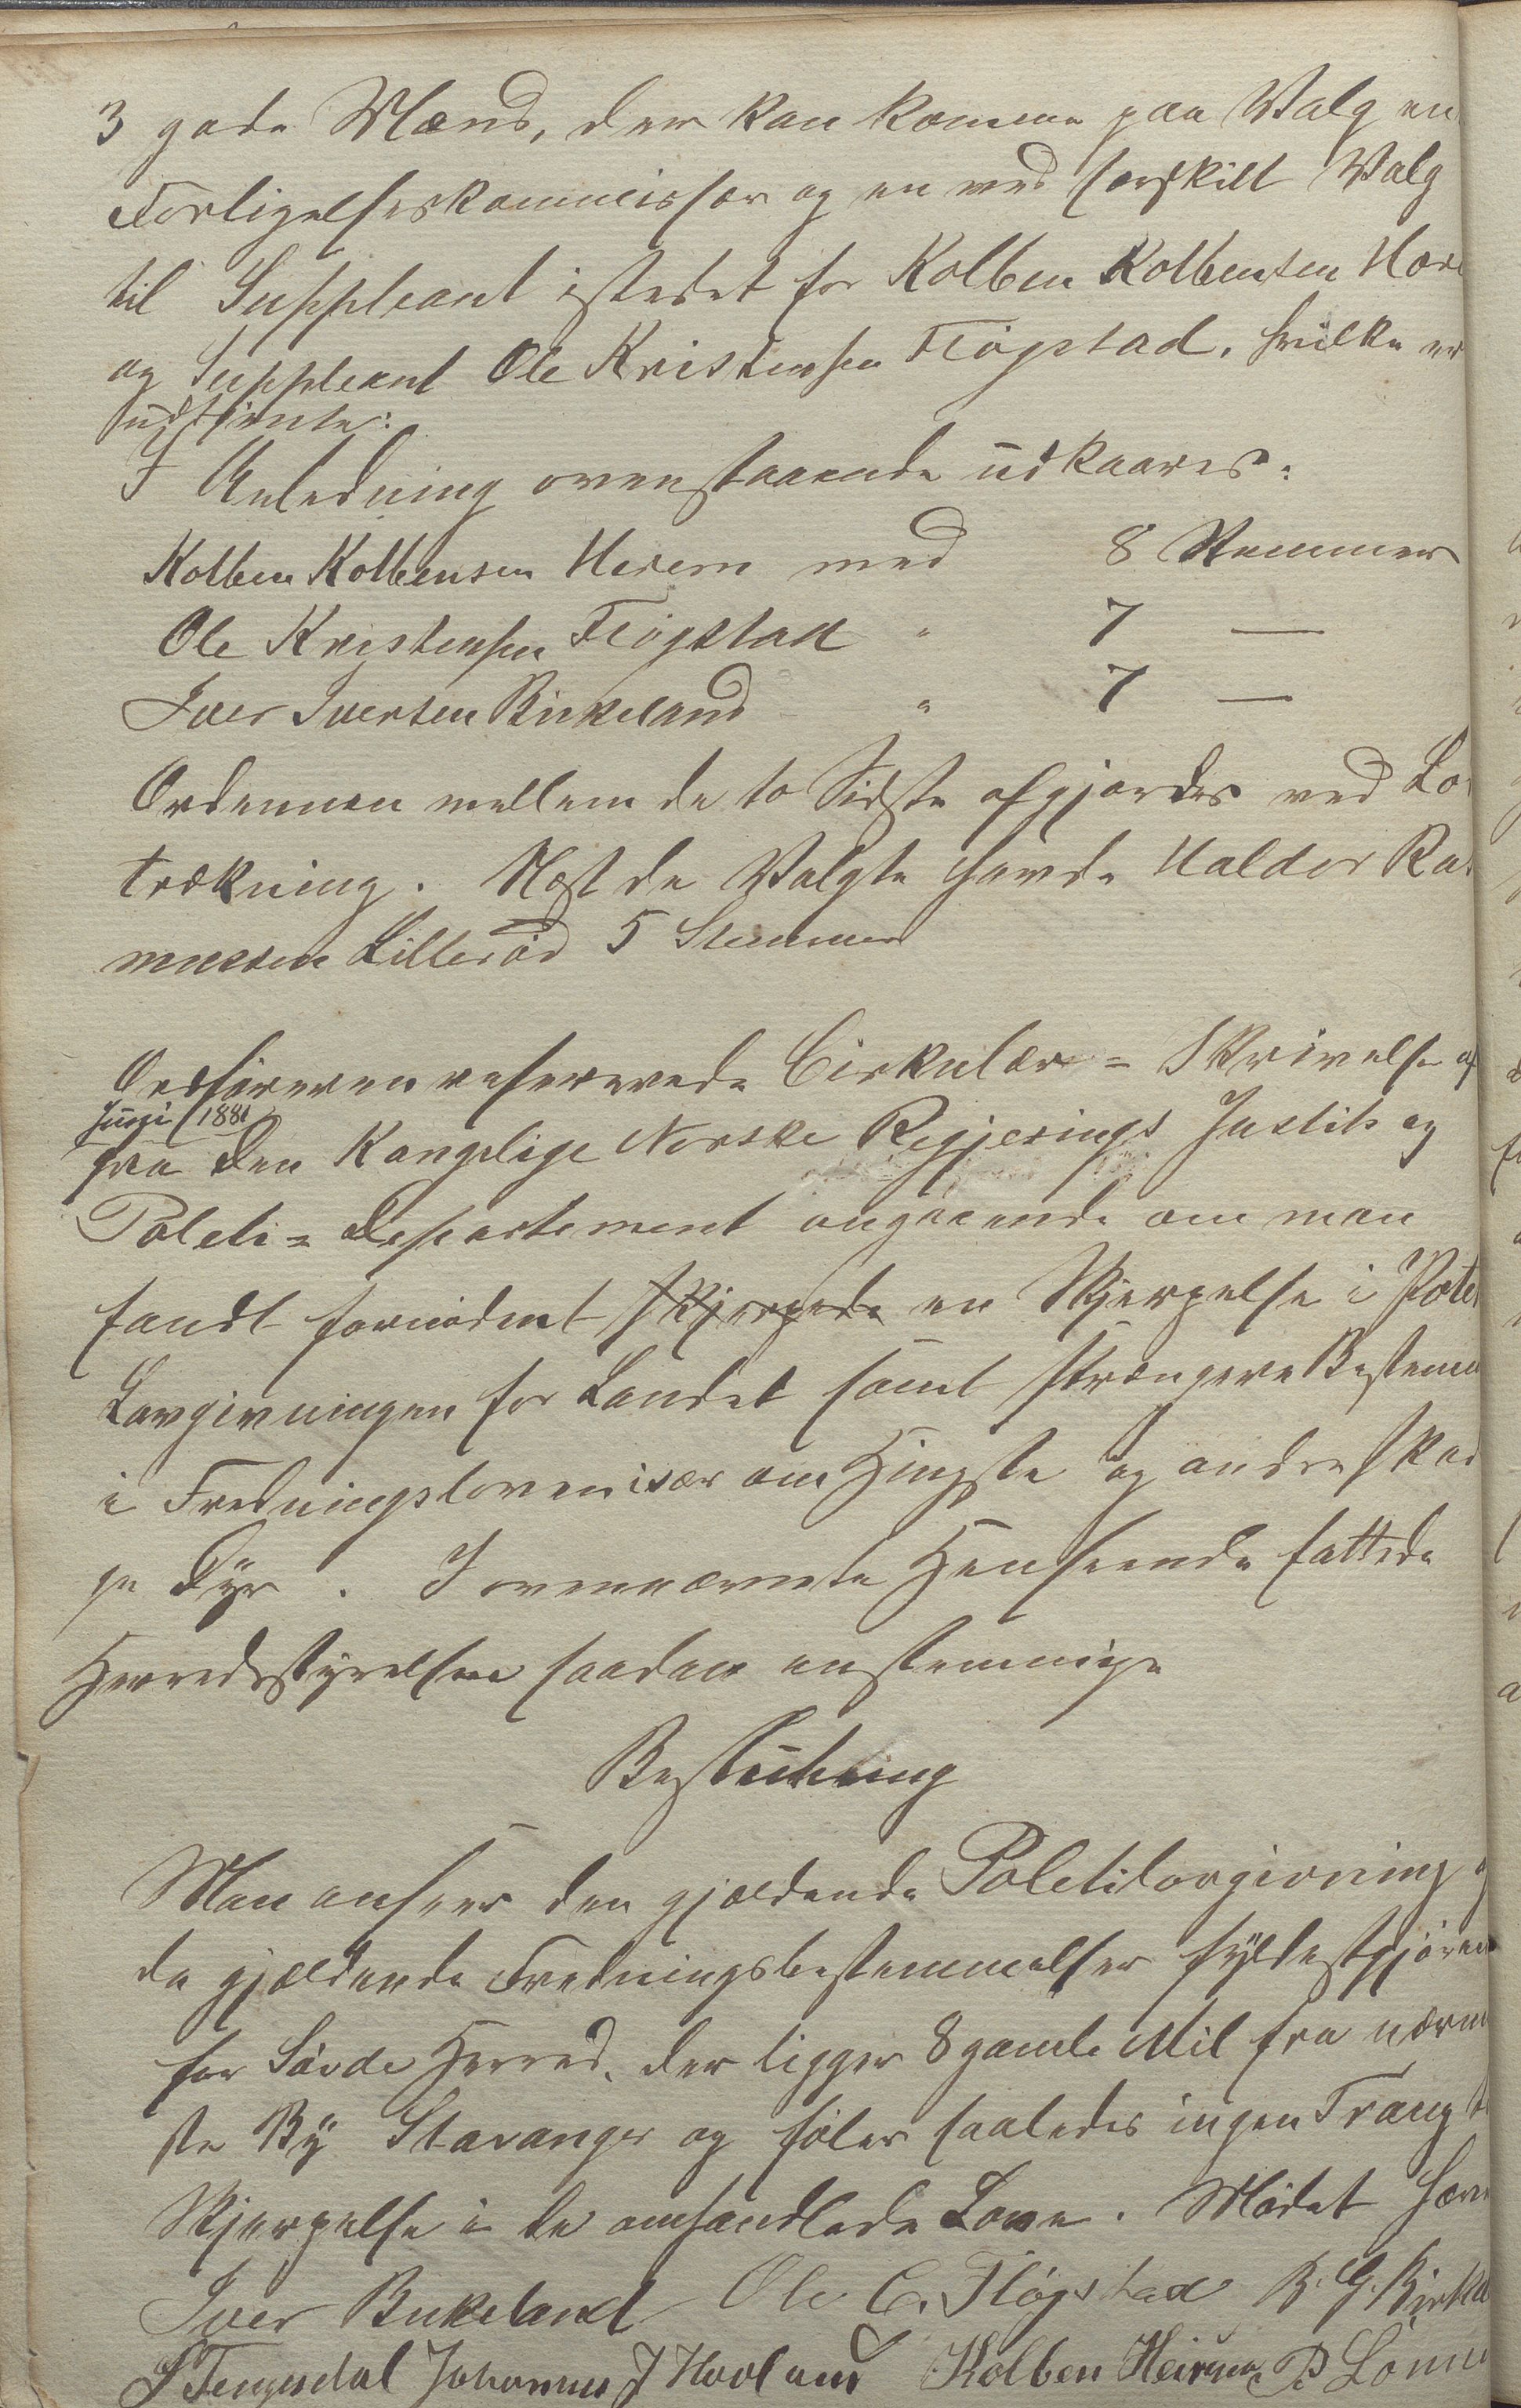 3 gode Mænd, der kan komme paa Valg en
Forligelseskommissær og en ved særskilt Valg
til Suppleant istedet for Kolben Kolbensen
og Suppleant Ole Kristensen Fløgstad, hvilke er
udtjente:
I Anledning ovenstaaende udkaares:
Kolben Kolbensen med 8 Stemmer
Ole Kristensen Fløgstad " 7 —
Iver Iversen Birkeland " 7 —
Ordennen mellem de to Sidste afgjordes ved Lo
trækning. Næst de Valgte havde Haldor Ras
mussen Lillerød 5 Stemmer
Ordføreren refererede Cirkulær = Skrivelse af
Juni 1881
fra den Kongelige Norske Regjerings Justits og
Politi = Departement angaaende om man
fandt fornødent skjerpede en Skjerpelse i Polit
Lovgivningen for Landet samt strængere Bestem
i Fredningsloven især om Hingste og andre skad
ge Dyr. I ovennævnte Henseende fattede
Herredsstyrelsen saadan enstemmige
Beslutning
Man ansees den gjældende Politilovgivning og
de gjældende Fredningsbestemmelser fyldestgjøren
for Søvde Herred, der ligger 8 gamle Mil fra nærm
ste By Stavanger og føler saaledes ingen Trang t
Skjerpelse i de omhandlede Love. Mødet hæv
Iver Birkeland Ole C. Fløgstad B. G. Birkel
S Tengesdal Johannes J Hovland Kolben P